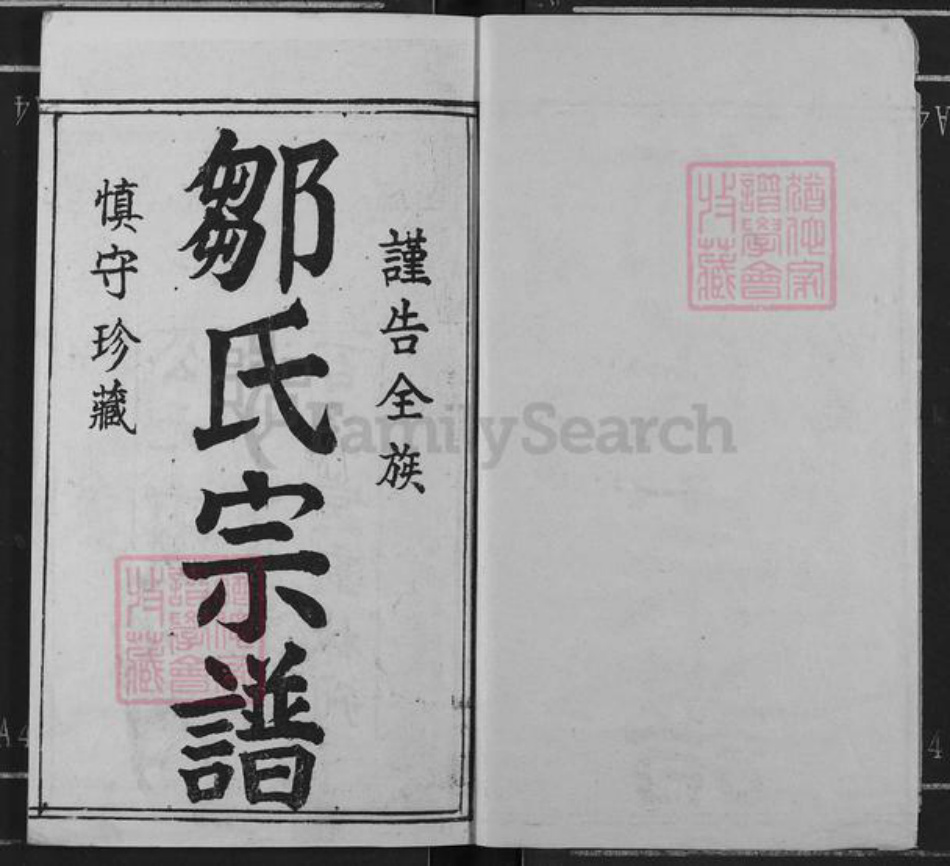 謹告全族
鄒氏宗譜
慎守珍藏
FamilySearch
猶他家
譜學會
收藏
猶他家
譜學會
收藏